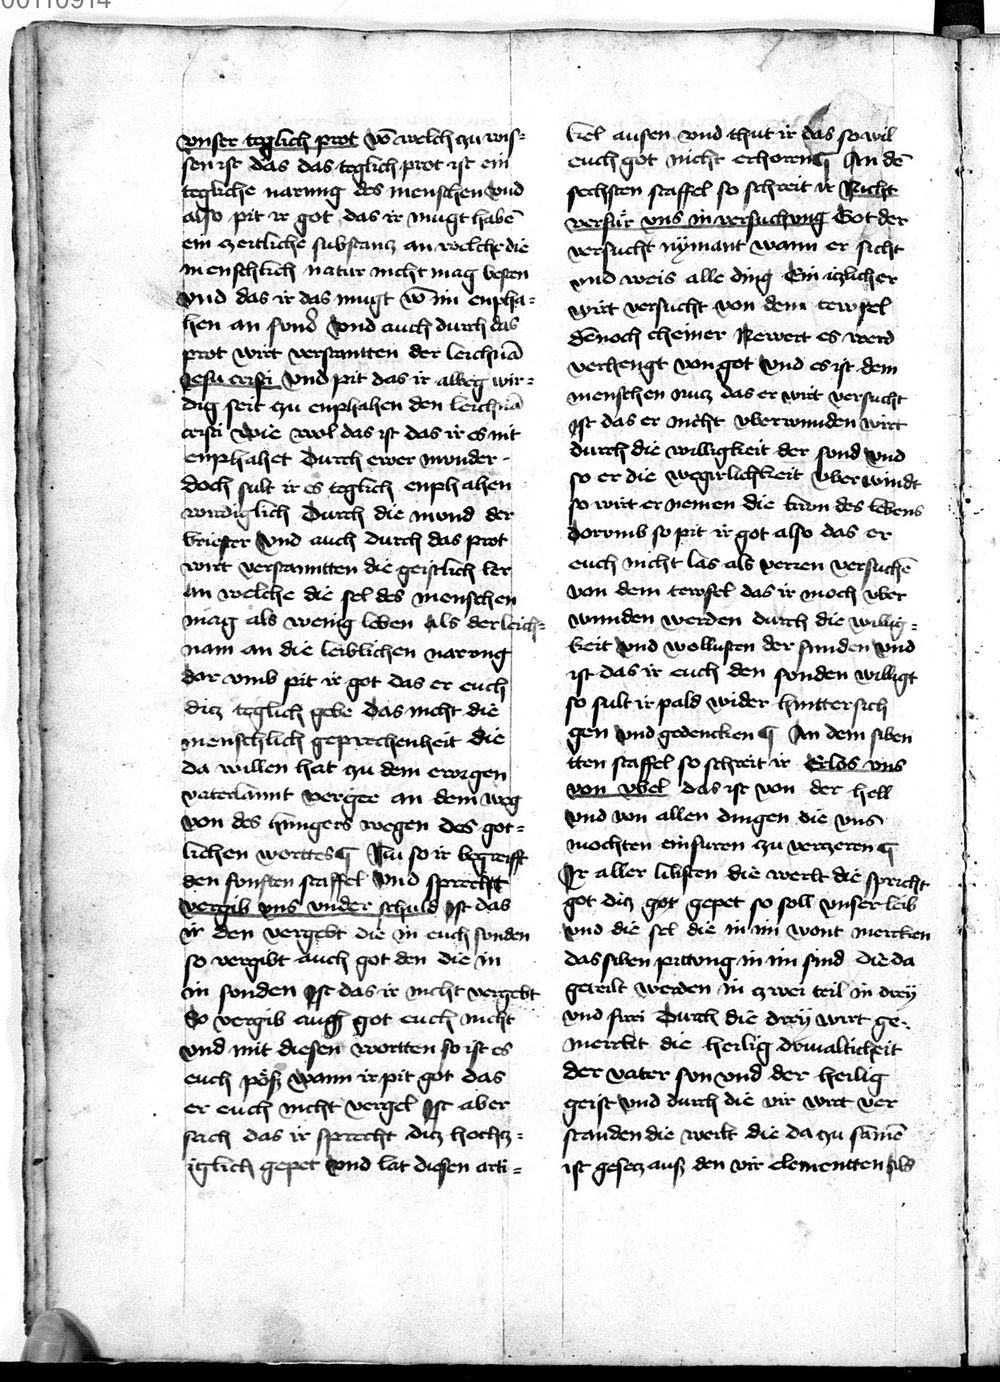 00110914
vnser teglich prot võ welch zu wis=
sen ist das das teglich prot ist ein
tegliche narung des menschen vnd
also pit ir got das ir mugt habẽ
ein zeitliche substantz an welche die
menschlich natur nicht mag besten
vnd das ir das mugt võ im enpha=
hen an sund vnd auch durch das
prot wirt verstantten der leichnã
jesu cristi vnd pit das ir albeg wir=
dig seit zu enphahen den leichnã
cristi wie wol das ist das ir es nit
enphahet durch ewer munder
doch sult ir es teglich enphahen
wirdiglich durch die mund der
briester vnd auch durch das prot
wirt verstanntten die geistlich ler
an welche die sel des menschen
mag als wenig leben als der leich=
nam an die leiblichen narong
dor vmb pit ir got das er euch
ditz teglich gebe das nicht die
menschlich geprechenheit die
da willen hat zu dem ewigen
vaterlannt vergee an dem weg
von des hungers wegen des got=
lichen worttes Nu so ir begreifft
den funften staffel vnd sprecht
vergib vns vnder schuld Ist das
ir den vergebt die in euch sunden
so vergibt auch got den die in
in sonden Ist das ir nicht vergebt
so vergib auch got euch nicht
vnd mit diesen wortten so ist es
euch pöß wann ir pit got das
er euch nicht vergel Ist aber
sach das ir sprecht ditz hochtz=
iglich gepet vnd lat diesen arti=
kel ausen vnd thut ir das so wil
euch got nicht erhoren An dẽ
sechsten staffel so schreit ir Nicht
verfür vns in versuchung Got der
versucht nymant wann er sicht
vnd weis alle ding Ein itzlicher
wirt versucht von dem tewfel
dẽnoch cheiner Newert es werd
verhengt von got vnd es ist dem
menschen nutz das er wirt versucht
Ist das er nicht vberwunden wirt
durch die willigkeit der sond vnd
so er die wegirlichkeit vberwindt
so wirt er nemen die kron des lebens
dorvmb so pit ir got also das er
euch nicht las als verren versuchẽ
von dem tewfel das ir moch vber
wunden werden durch die willig=
keit vnd wollusten der sunden vnd
ist das ir euch den sonden willigt
so sult ir pald wider hinttersich
gen vnd gedencken An dem siben
tten staffel so schreit ir Erlos vns
von vbel das ist von der hell
vnd von allen dingen die vns
mochten einfuren zu verzeren
Ir aller libsten die weilt die spricht
got ditz got gepet so soll vnser leib
vnd die sel die in im wont mercken
das siben pittung in im sind die da
geteilt werden in zwei teil in drey
vnd firi Durch die drey wirt ge=
merckt die heilig drivaltickeit
der vater sun vnd der heilig
geist vnd durch die vir wirt ver
standen die werlt die da zu samẽ
ist gesetz auß den vir elementten als